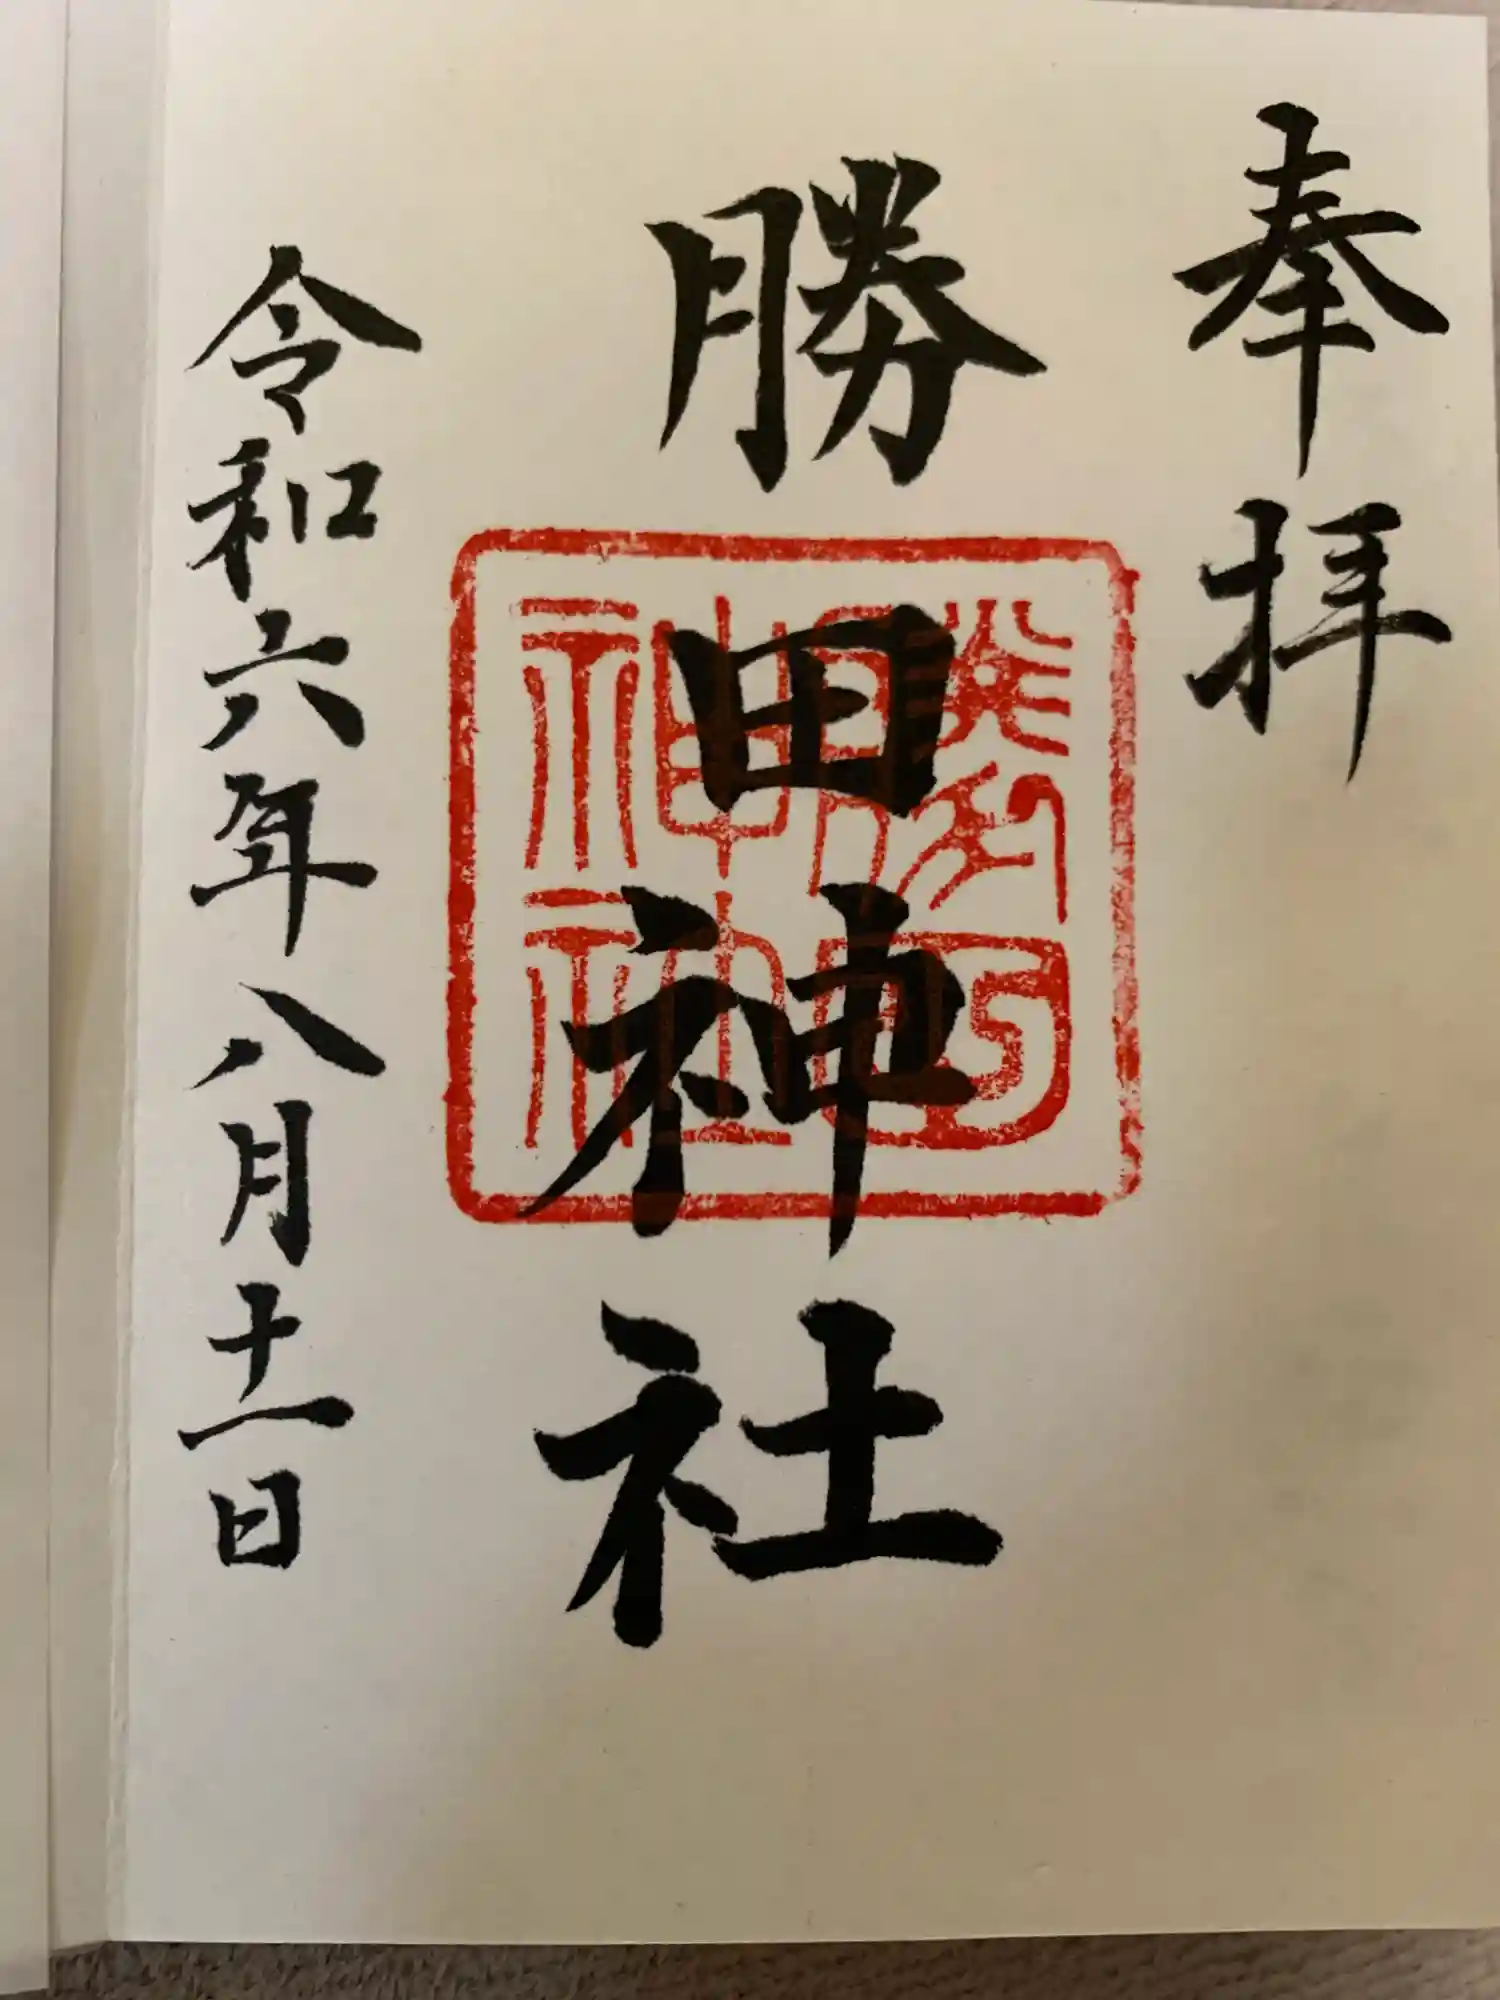 奉拝
勝田神社
勝田神社
令和六年八月十一日